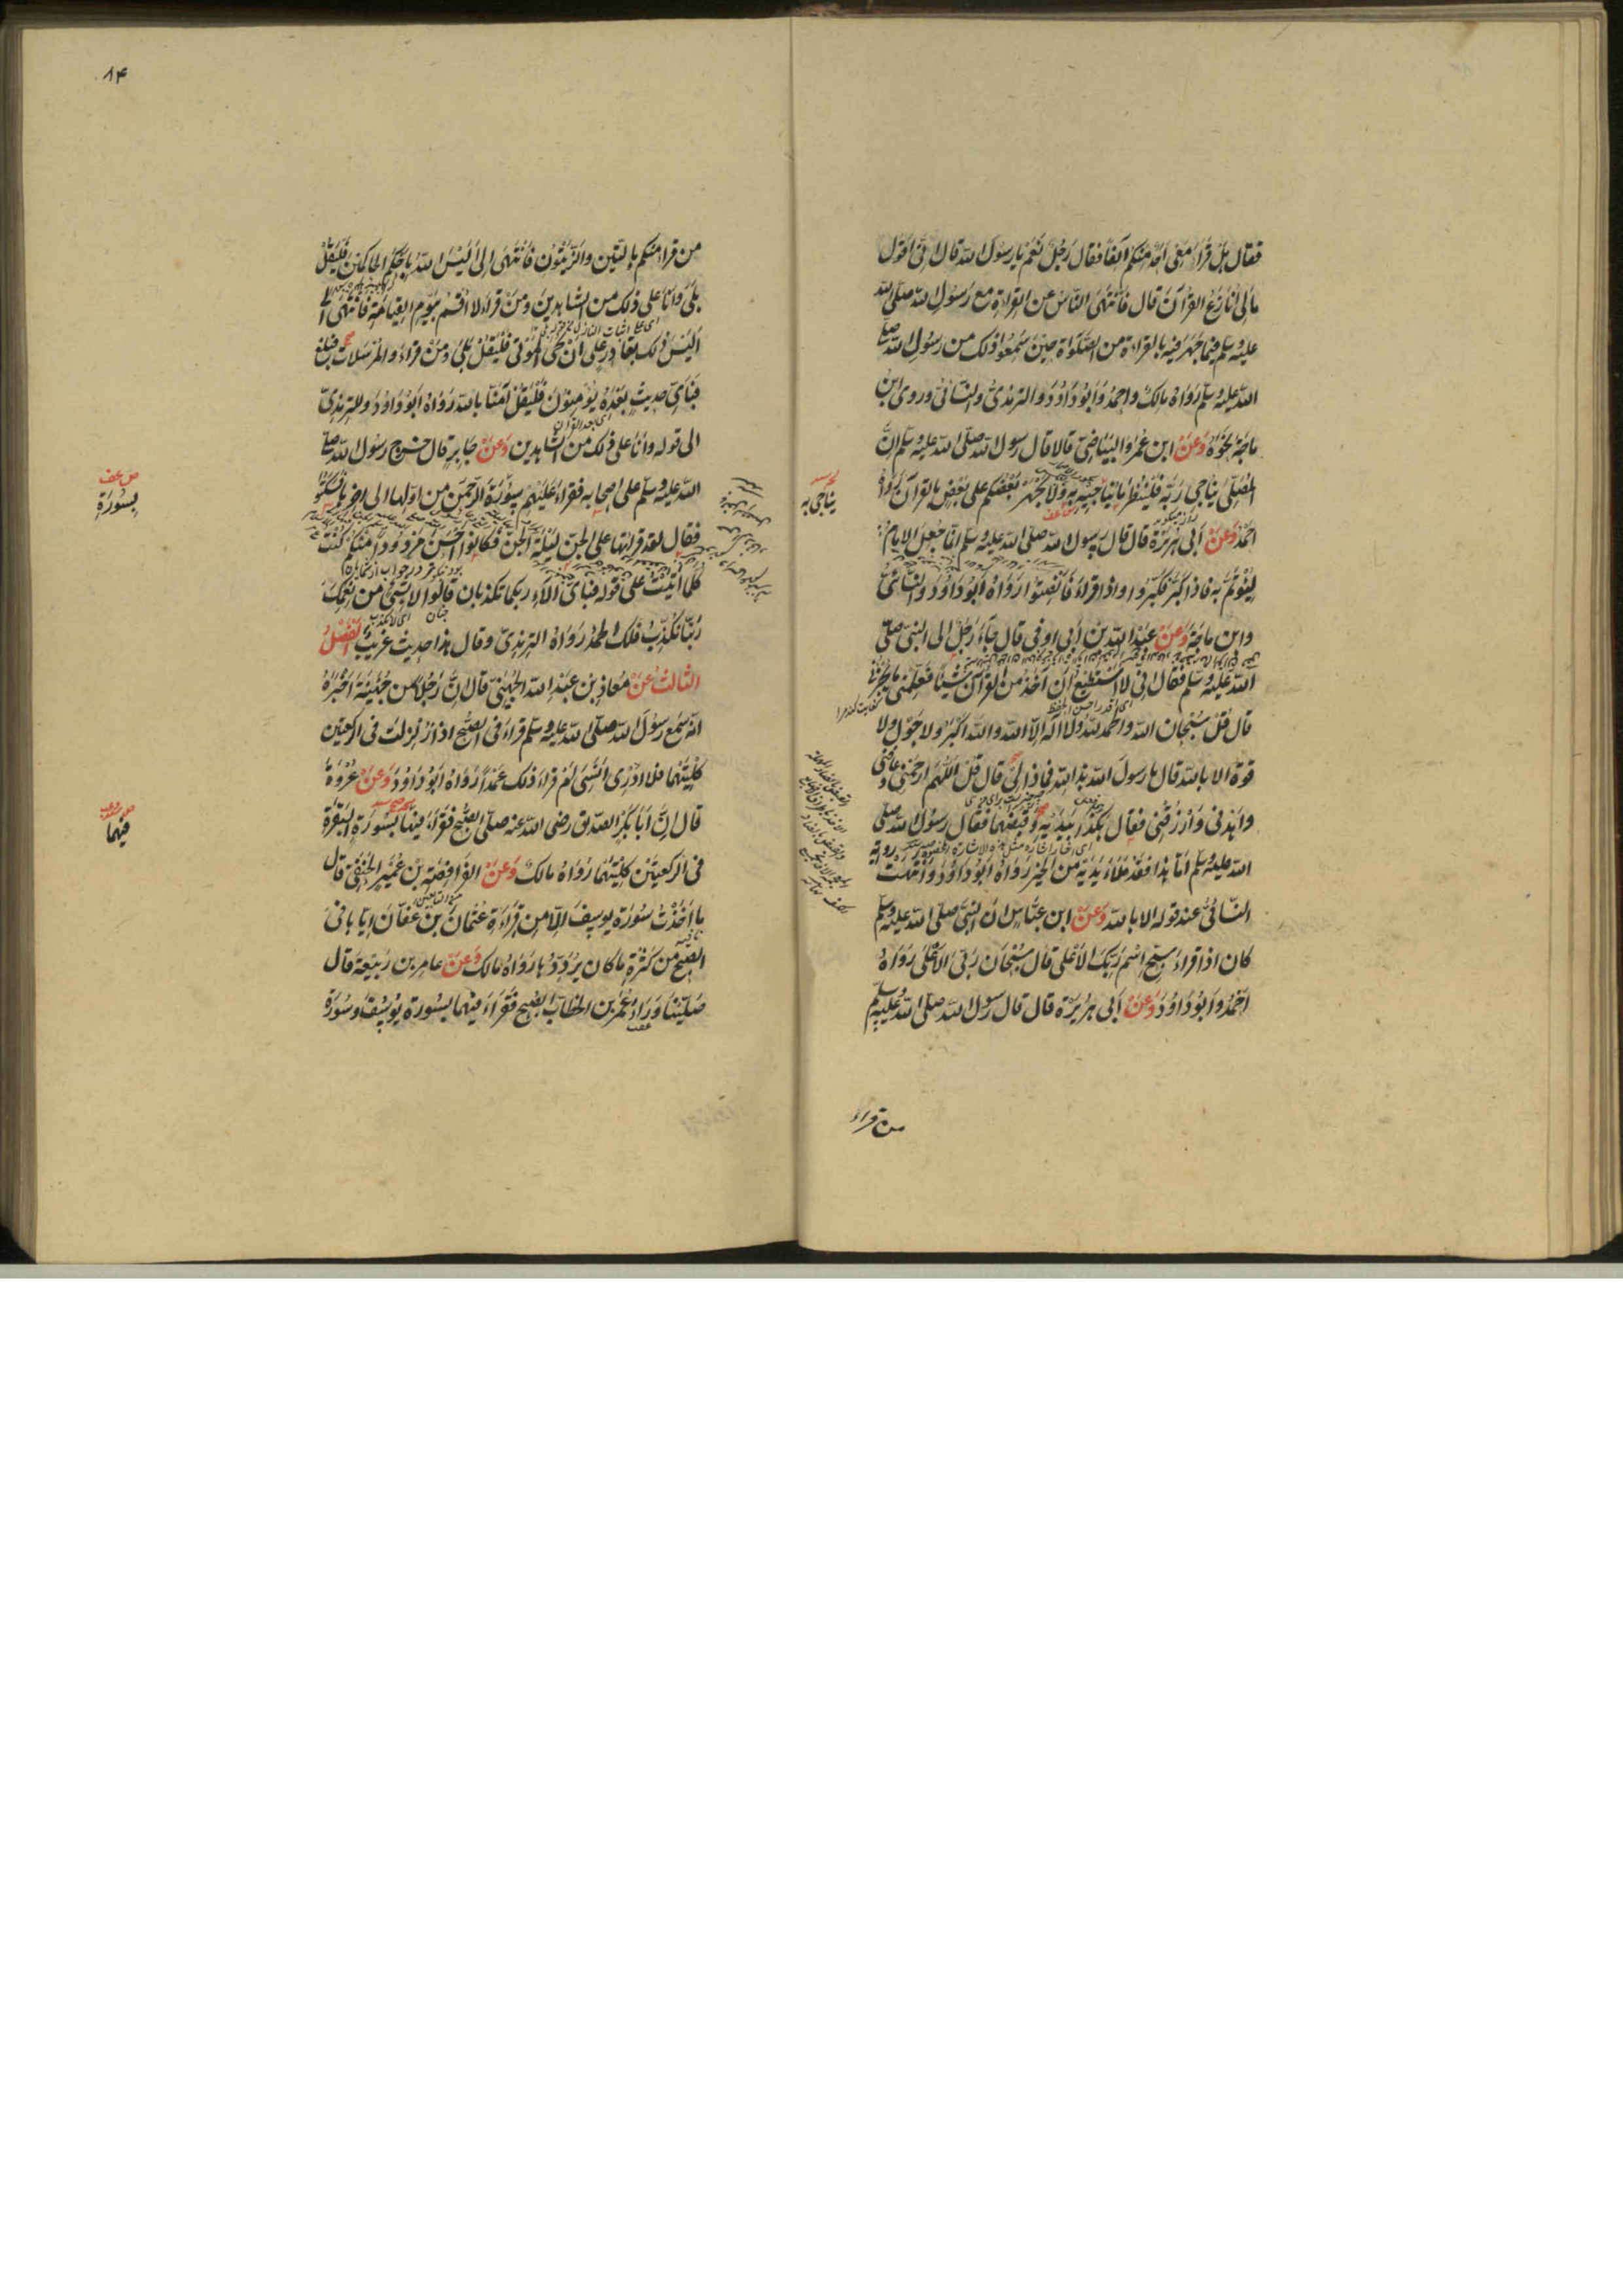 فقال هل قراء معى احد منكم آنفا فقال رجل نعم يا رسول الله قال انى اقول
مالى انازع القرآن قال فانتهى الناس عن القراءة مع رسول الله صلى الله
عليه وسلم فيما جهر فيه بالقراءة من الصلواة حين سمعوا ذلك من رسول الله صلى
الله عليه وسلم رواه مالك واحمد وابو داود والترمذى والنسائى وروى ابن
ماجة نحوه وعن ابن عمر والبياضى قالا قال رسول الله صلى الله عليه وسلم ان
المصلى يناجى ربه فلينظر ما يناجيه به ولا يجهر بعضكم على بعض بالقرآن رواه
احمد وعن ابى هريرة قال قال رسول الله صلى الله عليه وسلم انما جعل الامام
ليؤتم به فاذا كبر فكبروا واذا قراء فانصتوا رواه ابو داود والنسائى
وابن ماجة وعن عبد الله بن ابى اوفى قال جاء رجل الى النبى صلى
الله عليه وسلم فقال انى لا استطيع ان آخذ من القرآن شيئا فعلمنى ما يجزئنى
قال قل سبحان الله والحمد لله ولا اله الا الله والله اكبر ولا حول ولا
قوة الا بالله قال يا رسول الله هذا لله فماذا لى قال قل اللهم ارحمنى وعافنى
واهدنى وارزقنى فقال هكذا بيديه وقبضهما فقال رسول الله صلى
الله عليه وسلم اما هذا فقد ملاء يديه من الخير رواه ابو داود وانتهت رواية
النسائى عند قوله الا بالله وعن ابن عباس ان النبى صلى الله عليه وسلم
كان اذا قراء سبح اسم ربك الاعلى قال سبحان ربى الاعلى رواه
احمد وابو داود وعن ابى هريرة قال قال رسول الله صلى الله عليه وسلم
من قراء
يناجى به
٨٤
من قراء منكم بالتين والزيتون فانتهى الى اليس الله باحكم الحاكمين فليقل
بلى وانا على ذلك من الشاهدين ومن قراء لا اقسم بيوم القيامة فانتهى الى
اليس ذلك بقادر على ان يحى الموتى فليقل بلى ومن قراء والمرسلات فبلغ
فباى حديث بعده يؤمنون فليقل آمنا بالله رواه ابو داود والترمذى
الى قوله وانا على ذلك من الشاهدين وعن جابر قال خرج رسول الله صلى
الله عليه وسلم على اصحابه فقراء عليهم سورة الرحمن من اولها الى آخرها فسكتوا
فقال لقد قراتها على الجن ليلة الجن فكانوا احسن مردودا منكم كنت
كلما اتيت على قوله فباى الاء ربكما تكذبان قالوا لا بشئ من نعمك
ربنا نكذب فلك الحمد رواه الترمذى وقال هذا حديث غريب الفصل
الثالث عن معاذ بن عبد الله الجهنى قال ان رجلا من جهينة اخبره
انه سمع رسول الله صلى الله عليه وسلم قراء فى الصبح اذا زلزلت فى الركعتين
كلتيهما فلا ادرى انسى ام قراء ذلك عمدا رواه ابو داود وعن عروة
قال ان ابا بكر الصديق رضى الله عنه صلى الصبح فقراء فيهما بسورة البقرة
فى الركعتين كلتيهما رواه مالك وعن الفرافصة بن عمير الحنفى قال
ما اخذت سورة يوسف الا من قراءة عثمان بن عفان اياها فى
الصبح من كثرة ما كان يرددها رواه مالك وعن عامر بن ربيعة قال
صلينا وراء عمر بن الخطاب الصبح فقراء فيهما بسورة يوسف وسورة
بسورة
فيهما